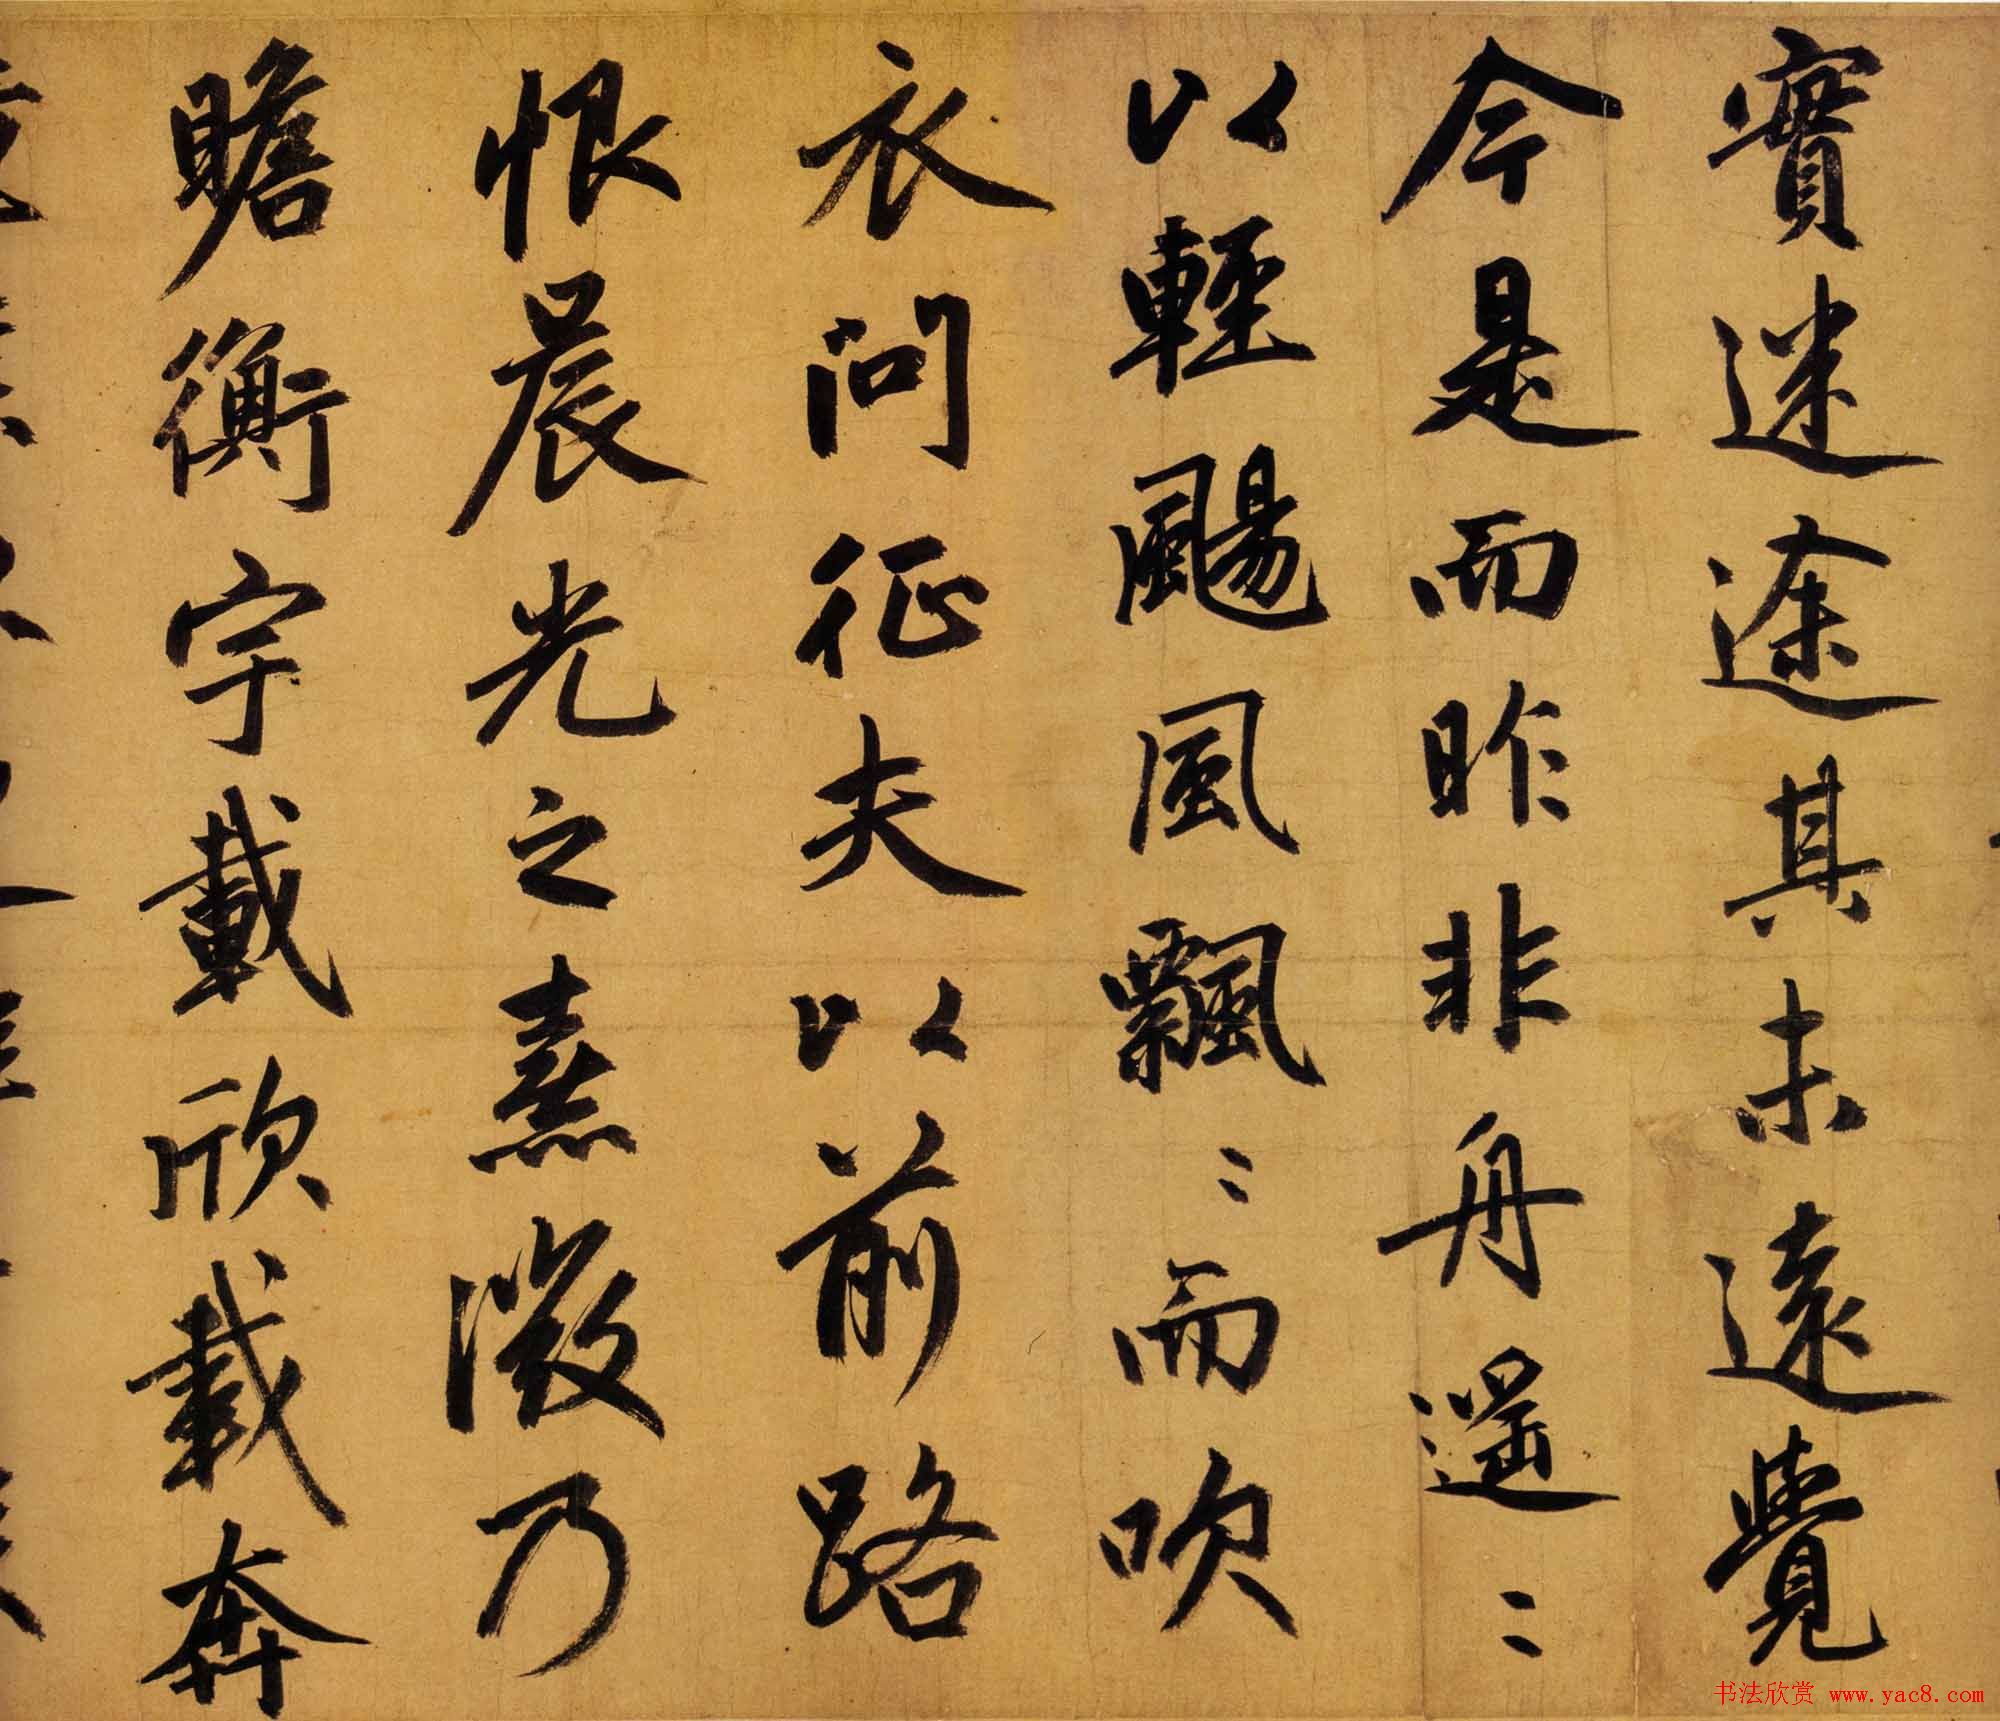 實迷途其未遠覺
今是而昨非舟遥〻
以輕颺風飄〻而吹
衣問征夫以前路
恨晨光之熹微乃
瞻衡宇載欣載奔
书法欣赏 www.yac8.com